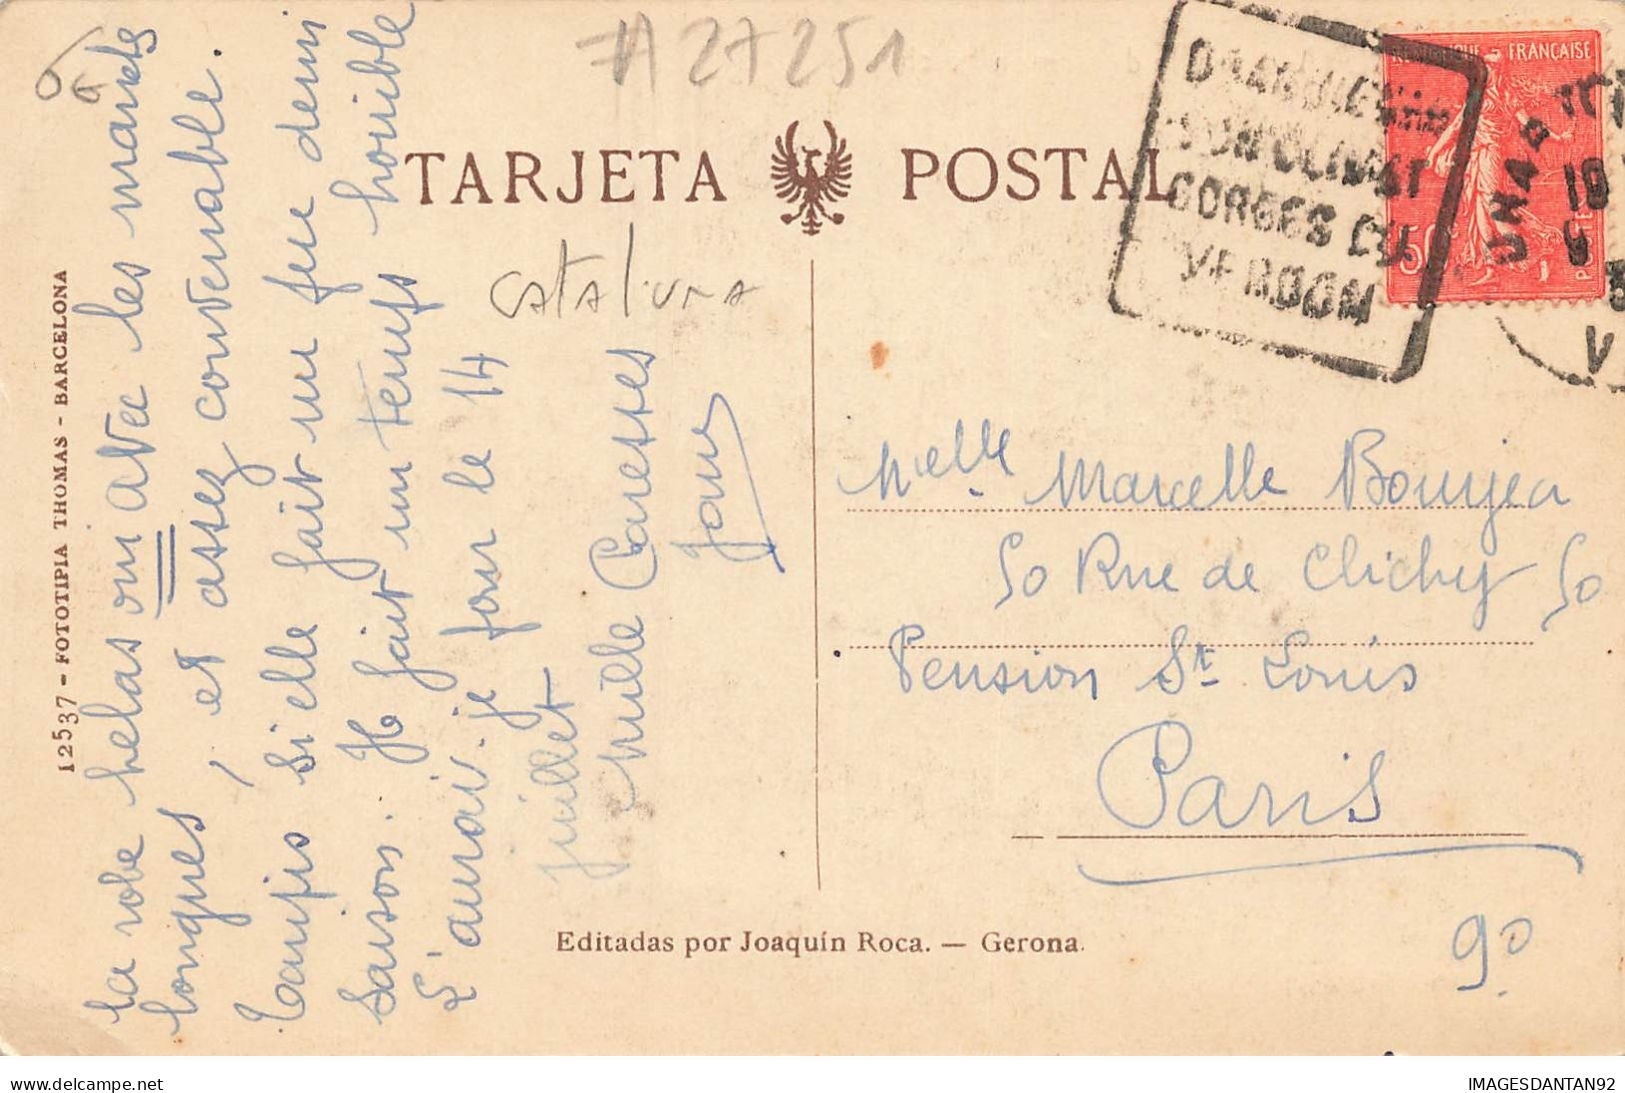 A 27251
TARJETA POSTAL
REPUBLIQUE FRANÇAISE
50
GORGES DU
VERDON
10
Cataluna
12537 - FOTOTIPIA THOMAS - BARCELONA
la robe helas oui avec les manches
longues, et assez convenable.
Tanpis si elle fait un peu demi
saison. Il fait un temps horrible
L'aurai-je pour le 14
juillet
Mille Caresses
Melle Marcelle
50 Rue de Clichy 50
Pension St Louis
Paris
9º
Editadas por Joaquín Roca. — Gerona.
See more on Delcampe.net
IMAGESDANTAN92